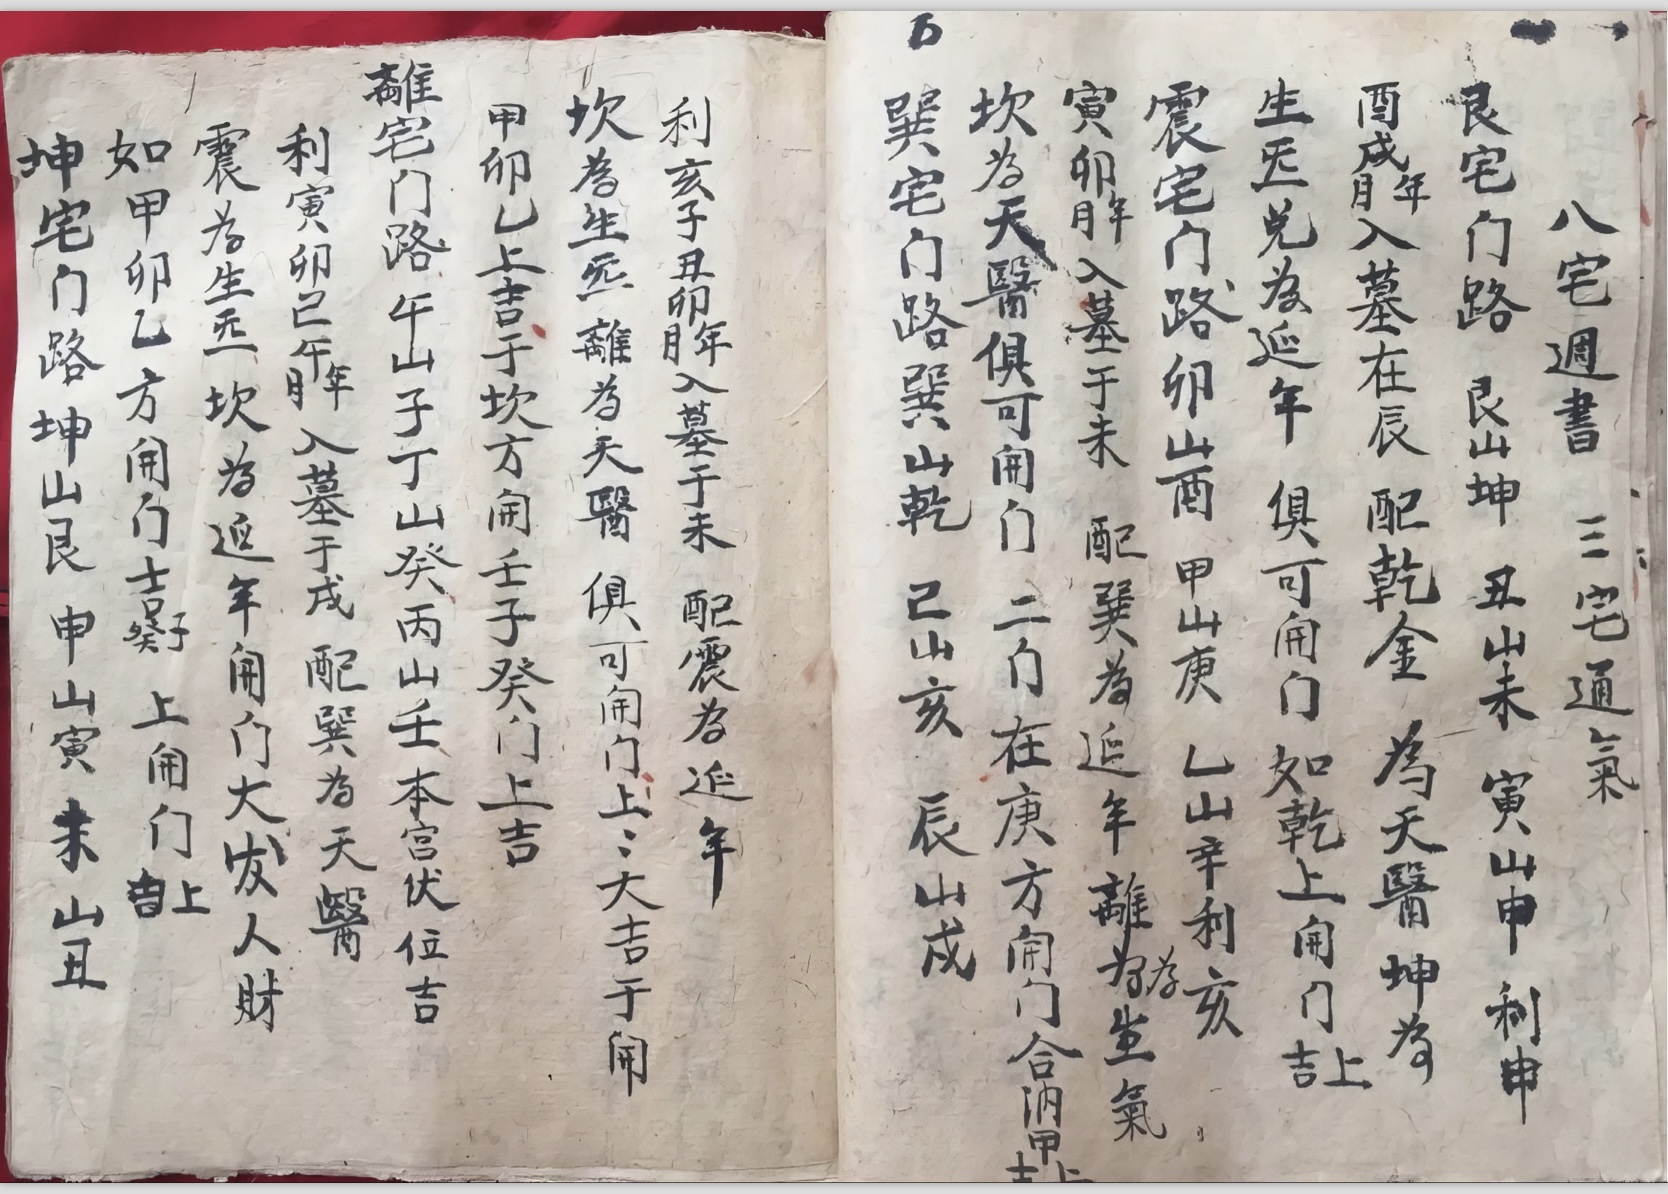 八宅週書 三宅通氣
艮宅门路 艮山坤 丑山未 寅山申 利申
酉戌年月入墓在辰 配乾金 為天醫坤為
生炁兌為延年 俱可開门如乾上開门上吉
震宅门路卯山酉 甲山庚 乙山辛利亥
寅卯年月入墓于未 配巽為延年離為為生氣
坎為天醫俱可開门 二门在庚方開门合汭甲上吉
巽宅门路巽山乾 己山亥 辰山戍
利亥子丑卯年月入墓于未 配震為延年
坎為生炁離為天醫 俱可開门上:大吉于開
甲卯乙上吉于坎方開壬子癸门上吉
離宅门路午山子丁山癸丙山壬本宫伏位吉
利寅卯己午年月入墓于戍 配巽為天醫
震為生炁坎為延年開门大发人財
如甲卯乙方開门吉子癸 上開门上吉
坤宅门路坤山艮 申山寅 未山丑